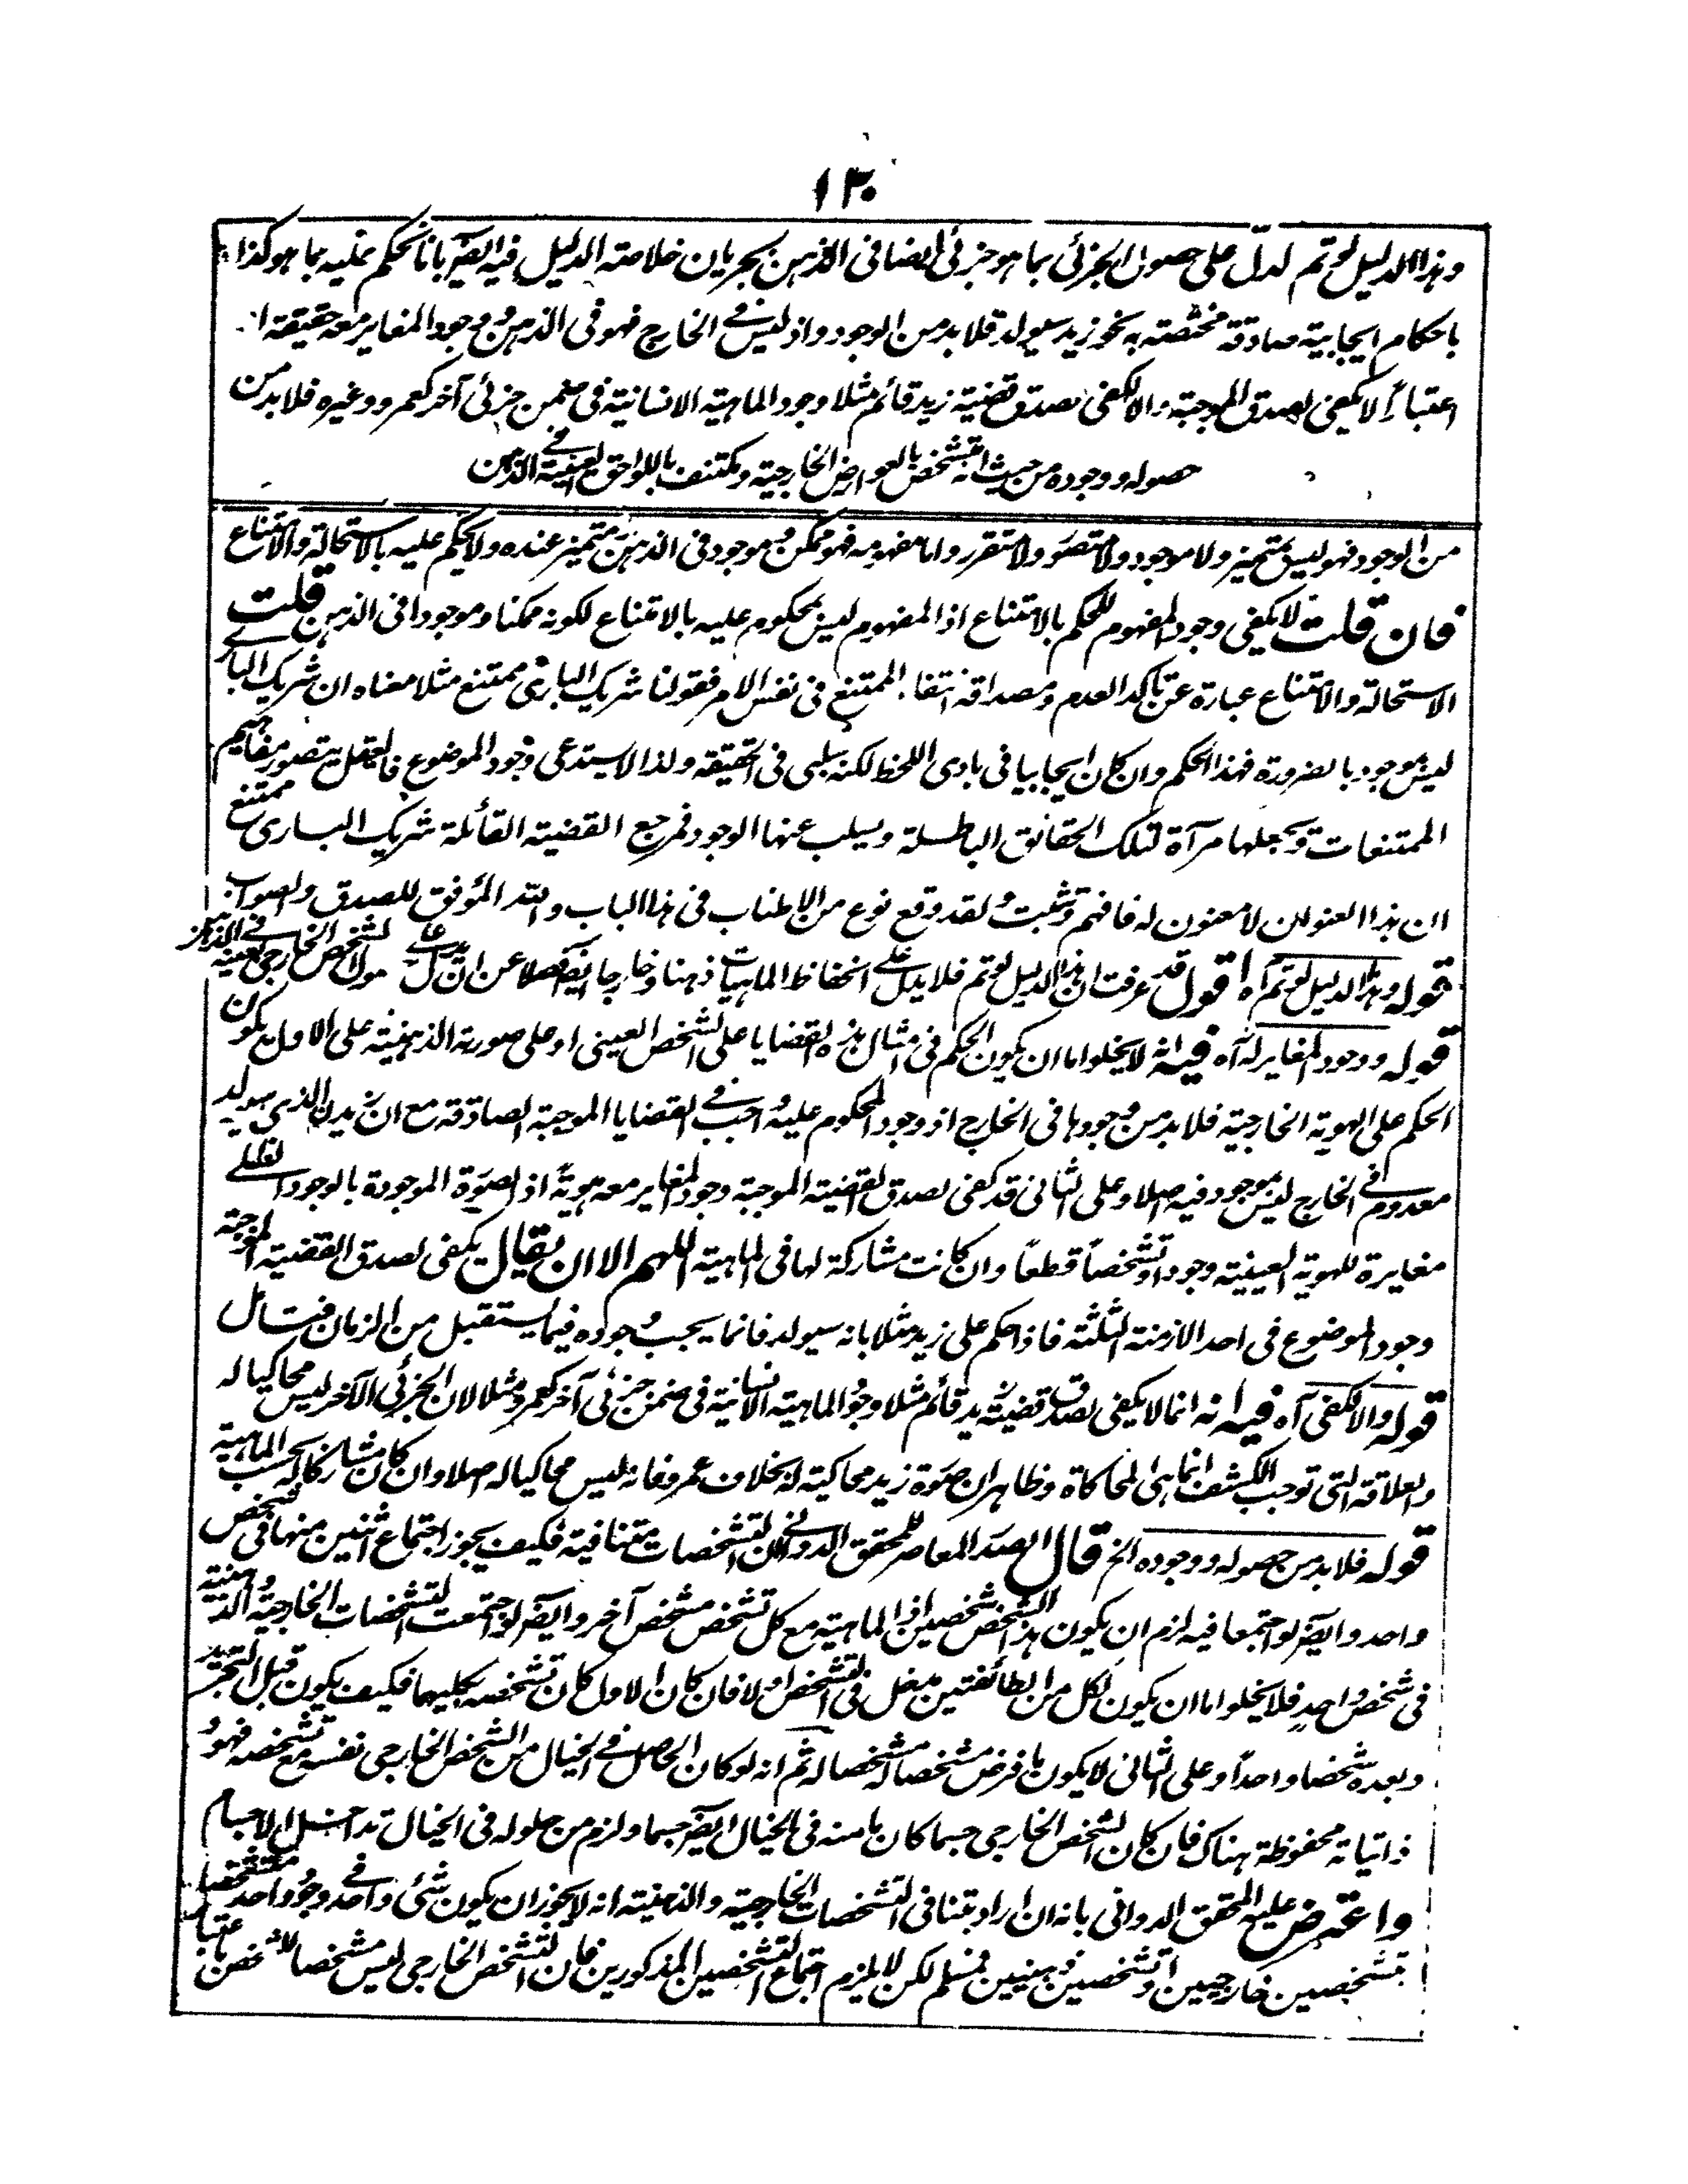 ١٣٠
وهذا الدليل لو تم لدل على حصول الجزئي بما هو جزئي ايضا في الذهن بجريان خلاصة الدليل فيه ايضر بانا نحكم عليه بما هو كذا
باحكام ايجابية صادقة مختصة به نحو زيد سيولد فلا بد من الوجود واذ ليس في الخارج فهو في الذهن ووجود المغاير معه حقيقة او
اعتباراً لا يكفي لصدق الموجبة والا لكفى لصدق قضية زيد قائم مثلا وجود الماهية الانسانية في ضمن جزئي آخر كعمرو وغيره فلا بد من
حصوله ووجوده من حيث انه متشخص بالعوارض الخارجية ومكتنف باللواحق العينية في الذهن
من الوجود فهو ليس بمتميز ولا موجود ولا متصور ولا متقرر واما مفهومه فهو ممكن وموجود في الذهن متميز عنده ولا يحكم عليه بالاستحالة والامتناع
فان قلت لا يكفي وجود المفهوم للحكم بالامتناع اذ المفهوم ليس بمحكوم عليه بالامتناع لكونه ممكنا وموجودا في الذهن قلت
الاستحالة والامتناع عبارة عن تاكد العدم ومصداقه انتفاء الممتنع في نفس الامر فقولنا شريك الباري ممتنع مثلا معناه ان شريك الباري
ليس بموجود بالضرورة فهذا الحكم وان كان ايجابيا في بادي اللحظ لكنه سلبي في الحقيقة ولذا لا يستدعي وجود الموضوع فالعقل يتصور مفاهيم
الممتنعات ويجعلها مرآة لتلك الحقائق الباطلة ويسلب عنها الوجود فمرجع القضية القائلة شريك الباري ممتنع
ان هذا العنوان لا معنون له فافهم وتثبت ولقد وقع نوع من الاطناب في هذا الباب والله الموفق للصدق والصواب
قوله وهذا الدليل لو تم آه اقول قد عرفت ان هذا الدليل لو تم فلا يدل على انحفاظ الماهيات ذهنا وخارجا ايضر فضلا عن ان يدل على حصول الشخص الخارجي بعينه في الذهن
قوله ووجود المغاير له آه فيه انه لا يخلو اما ان يكون الحكم في امثال هذه القضايا على الشخص العيني او على صورته الذهنية على الاول يكون
الحكم على الهوية الخارجية فلا بد من وجودها في الخارج اذ وجود المحكوم عليه واجب في القضايا الموجبة الصادقة مع ان زيدن الذي سيولد
معدوم في الخارج ليس بموجود فيه اصلا وعلى الثاني قد كفى لصدق القضية الموجبة وجود المغاير معه هويةً اذ الصورة الموجودة بالوجود الظلي
مغايرة للهوية العينية وجوداً وتشخصاً قطعاً وان كانت مشاركة لها في الماهية اللهم الا ان يقال يكفي لصدق القضية الموجبة
وجود الموضوع في احد الازمنة الثلثة فاذا حكم على زيد مثلا بانه سيولد فانما يجب وجوده فيما يستقبل من الزمان فتامل
قوله والا لكفى آه فيه انه انما لا يكفي لصدق قضية زيد قائم مثلا وجود الماهية الانسانية في ضمن جزئي آخر كعمرو مثلا لان الجزئي الآخر ليس محاكيا له
والعلاقة التي توجب الكشف انما هي المحاكاة وظاهر ان صورة زيد محاكية له بخلاف عمرو فانه ليس محاكيا له اصلا وان كان مشاركا له بحسب الماهية
قوله فلا بد من حصوله ووجوده الخ قال الصدر المعاصر للمحقق الدواني ان التشخصات متنافية فكيف يجوز اجتماع اثنين منها في شخص
واحد وايضر لو اجتمعا فيه لزم ان يكون هذا الشخص شخصين اذ الماهية مع كل تشخص شخص آخر وايضر لو اجتمعت التشخصات الخارجية والذهنية
في شخص واحد فلا يخلو اما ان يكون لكل من الطائفتين مدخل في التشخص او لا فان كان الاول كان تشخصه بكليهما فكيف يكون قبل التجريد
وبعده شخصا واحداً وعلى الثاني لا يكون ما فرض مشخصا له مشخصا له ثم انه لو كان الحاصل في الخيال من الشخص الخارجي نفسه مع تشخصه فهو و
ذاتياته محفوظة هناك فان كان الشخص الخارجي جسما كان ما منه في الخيال ايضر جسما ولزم من حلوله في الخيال تداخل الاجسام
واعترض عليه المحقق الدواني بانه ان اراد بتنافي التشخصات الخارجية والذهنية انه لا يجوز ان يكون شئ واحد في وجود واحد متشخصا
بتشخصين خارجيين او تشخصين ذهنيين فمسلم لكن لا يلزم اجتماع التشخصين المذكورين فان التشخص الخارجي ليس مشخصا للشخص باعتبار